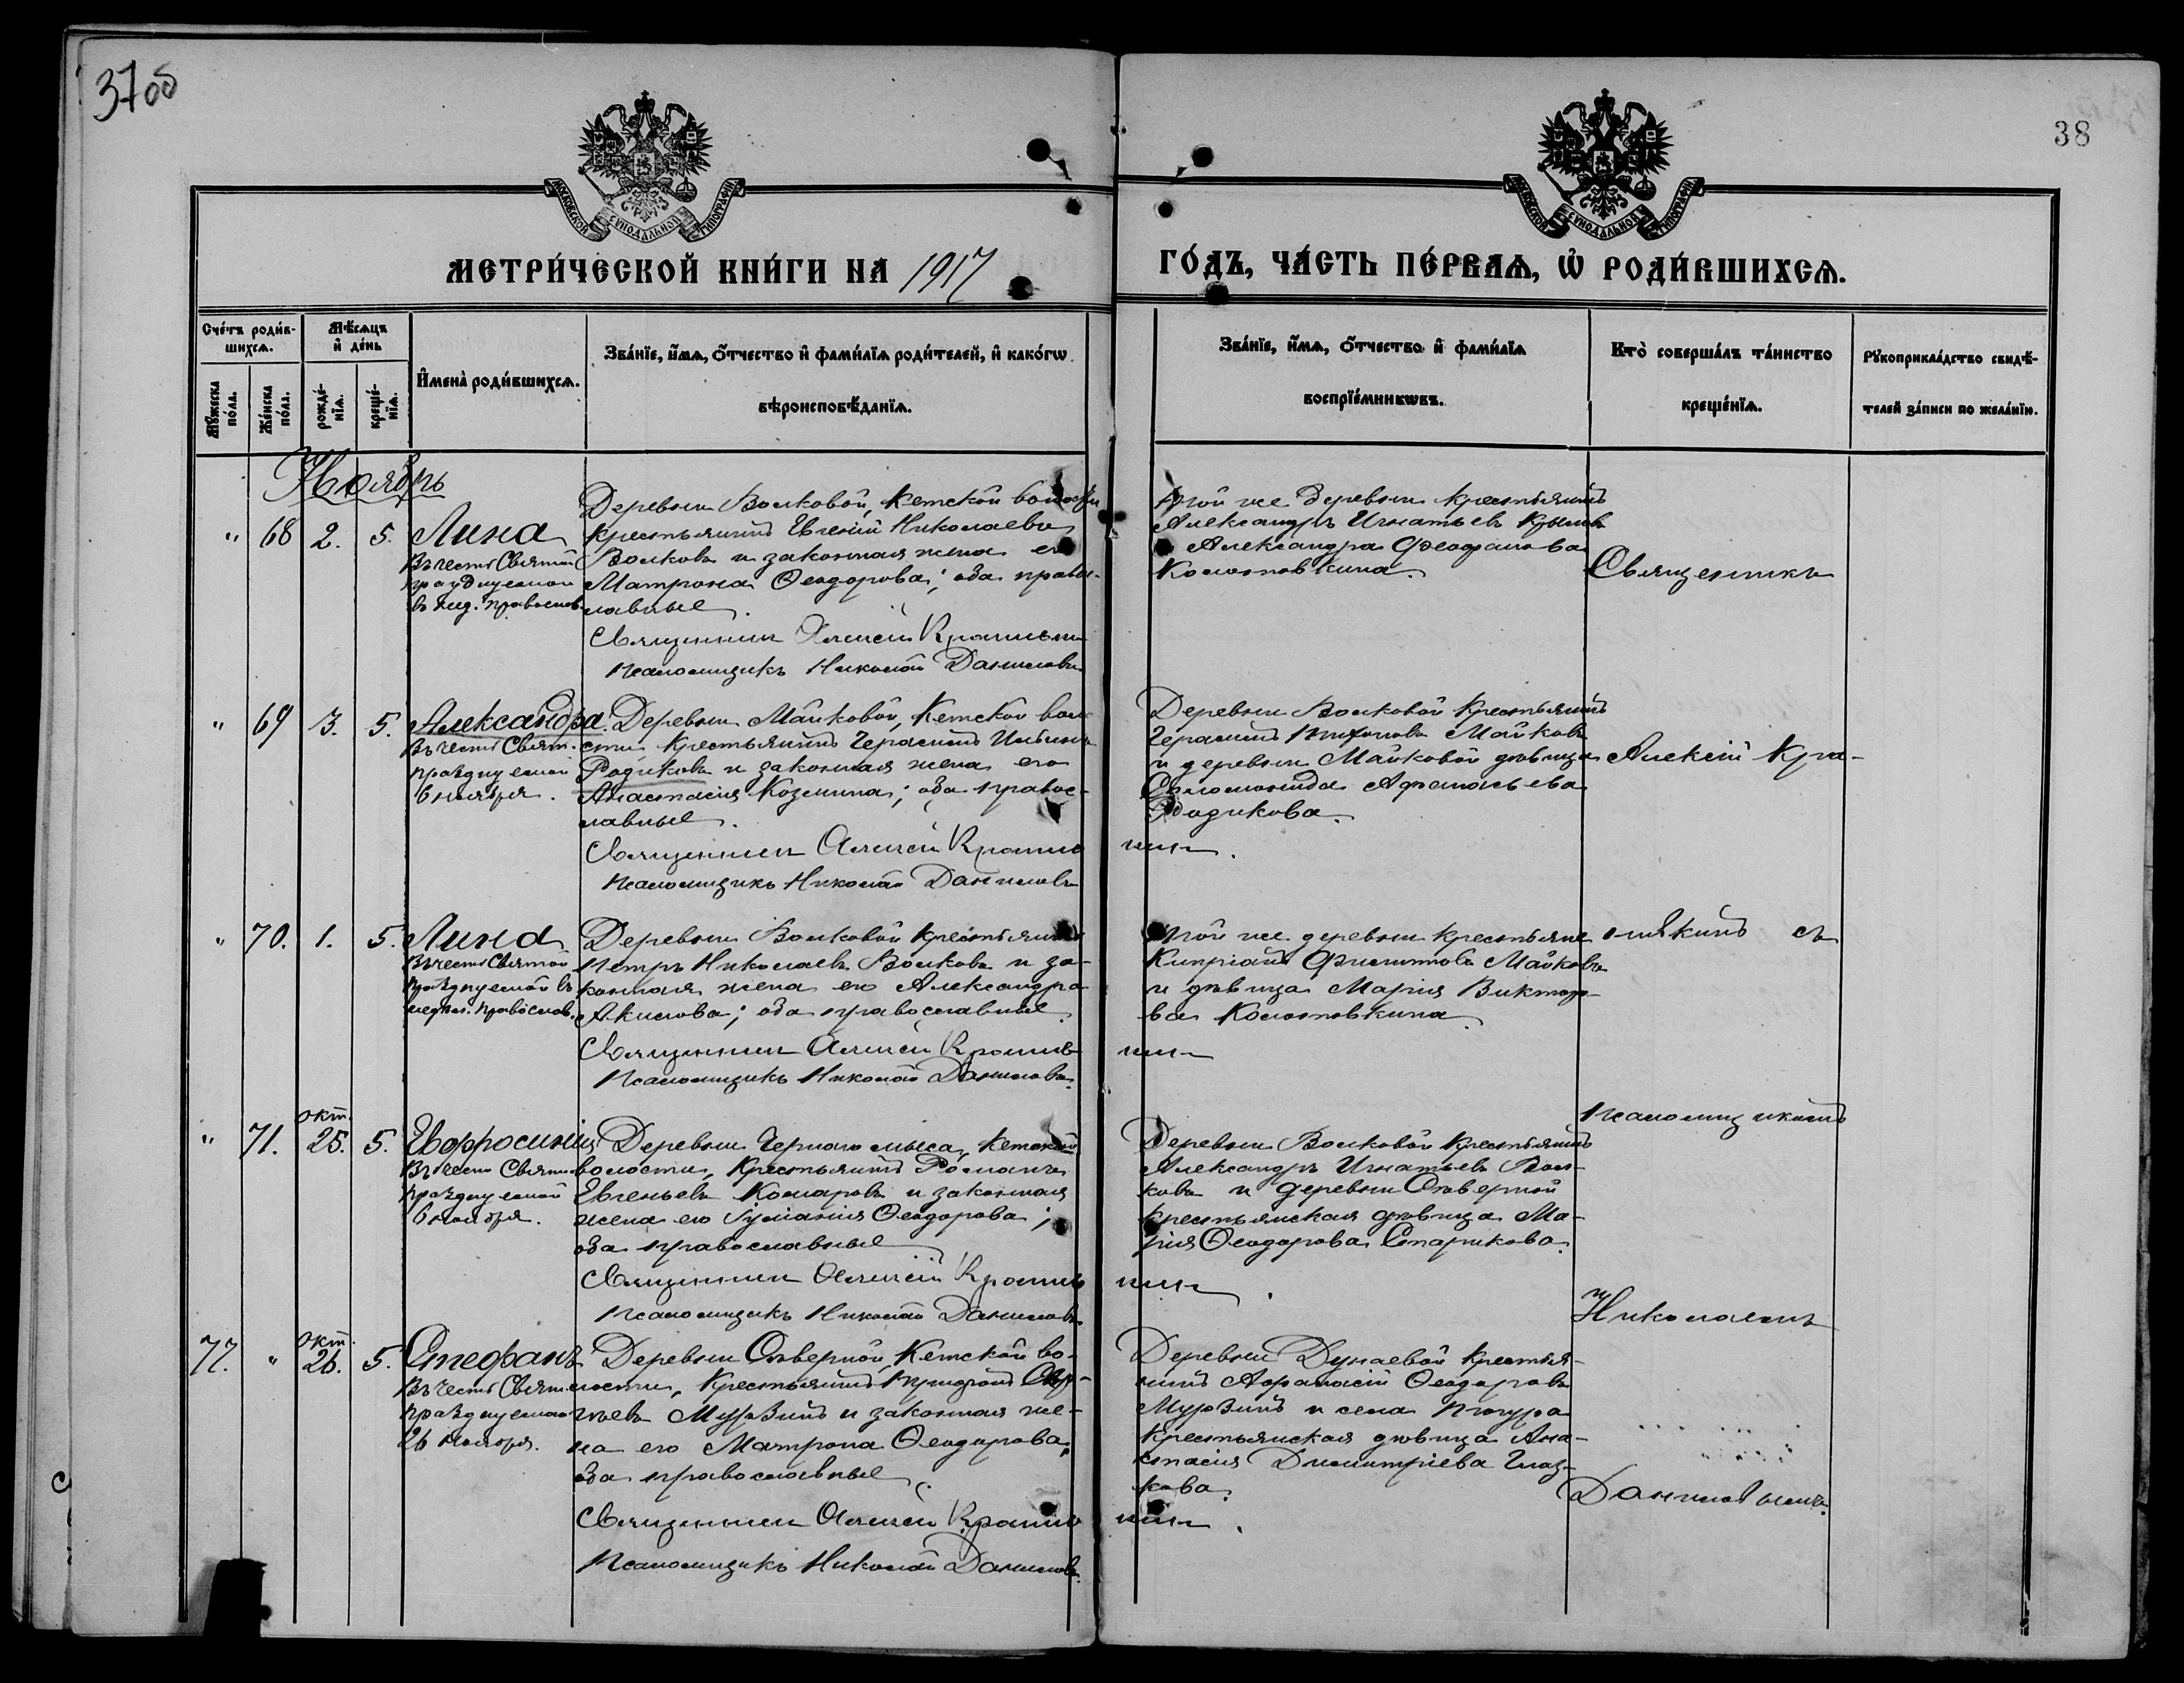 37об
38
МОСКОВСКОЙ СУНОДАЛЬНОЙ ТИПОГРАФІИ
МОСКОВСКОЙ СУНОДАЛЬНОЙ ТИПОГРАФІИ
МЕТРИ́ЧЕСКОЙ КНИ́ГИ НА 1917
ГО́ДЪ, ЧА́СТЬ ПЕ́РВАѦ, Ѡ҆ РОДИ́ВШИХСѦ.
Сче́тъ роди́в-
шихсѧ.
Мѣ́сѧцъ
и҆ де́нь
Мꙋ́жеска
по́ла.
Же́нска
по́ла.
рожде́-
нїѧ.
креще́-
нїѧ.
И҆мена̀ роди́вшихсѧ.
Зва́нїе, и҆́мѧ, ѻ҆́тчество и҆ фами́лїѧ роди́телей, и҆ како́гѡ
вѣроисповѣ́данїѧ.
Зва́нїе, и҆́мѧ, ѻ҆́тчество и҆ фами́лїѧ
воспрїе́мникѡвъ.
Кто̀ соверша́лъ та́инство
креще́нїѧ.
Рꙋкоприкла́дство свидѣ́-
телей за́писи по жела́нїю.
Ноябрь
" 68 2. 5. Лина
Въ честь Святой
празднуемой
въ нед. православ.
Деревни Волковой, Кетской волости
крестьянинъ Евгеній Николаевъ
Волковъ и законная жена его
Матрона Ѳеодорова; оба правос-
лавные.
Священникъ Алексій
Псаломщикъ Николай Даниловъ
Той же деревни крестьянинъ
Александръ Игнатьевъ
и Александра Феофанова
Колотовкина.
Священникъ
" 69 3. 5. Александра.
Въ честь Свят.
празднуемой
6 ноября.
Деревни Майковой, Кетской воло-
сти крестьянинъ Герасимъ
Родиковъ и законная жена его
Анастасія Козмина; оба правос-
лавные.
Священникъ Алексій
Псаломщикъ Николай Даниловъ
Деревни Волковой крестьянинъ
Герасимъ Тихоновъ Майковъ
и деревни Майковой дѣвица
Соломонида Афанасьева
Родикова.
Алексій Кра-
" 70. 1. 5. Лина
Въ честь Святой
празднуемой въ
недѣл. православ.
Деревни Волковой крестьянинъ
Петръ Николаевъ Волковъ и за-
конная жена его Александра
Акилова; оба православные.
Священникъ Алексій
Псаломщикъ Николай Даниловъ.
Той же деревни крестьяне
Кипріанъ Филиповъ Майковъ
и дѣвица Марія Викторо-
ва Колотовкина.
съ
Псаломщикомъ
" 71. окт. 25. 5. Евфросинія
Въ честь Святой
празднуемой
6 ноября.
Деревни Чернаго мыса, Кетской
волости, крестьянинъ Романъ
Евгеньевъ Комаровъ и законная
жена его Іуліанія Ѳеодорова;
оба православные
Священникъ Алексій
Псаломщикъ Николай Даниловъ
Деревни Волковой крестьянинъ
Александръ Игнатьевъ Вол-
ковъ и деревни Сѣверной
крестьянская дѣвица Ма-
рія Ѳеодорова Старикова.
Николаемъ
77. " окт. 26. 5. Стефанъ
Въ честь Свят.
празднуемаго
26 ноября.
Деревни Сѣверной, Кетской во-
лости, крестьянинъ Трифонъ
Мурзинъ и законная же-
на его Матрона Ѳеодорова,
оба православные.
Священникъ Алексій
Псаломщикъ Николай Даниловъ.
Деревни Дунаевой крестья-
нинъ Афанасій Ѳеодоровъ
Мурзинъ и села
крестьянская дѣвица Ана-
стасія Димитріева Глаз-
кова.
Даниловымъ.